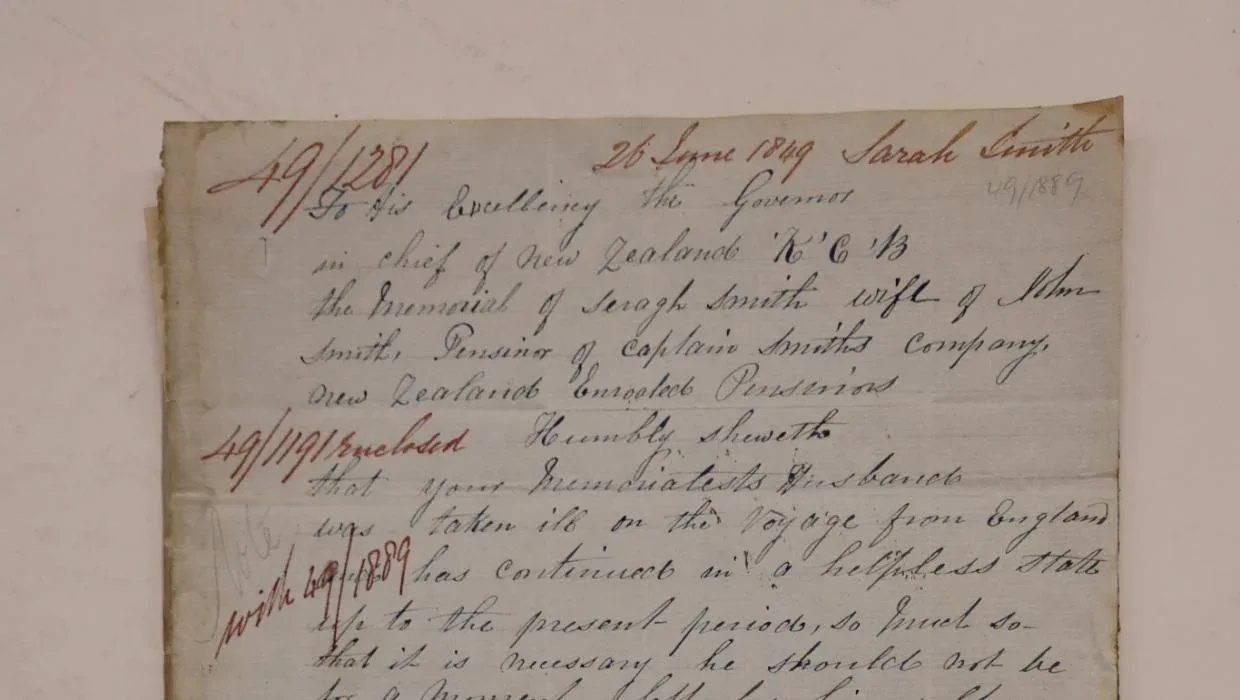 49/1281
26 June 1849 Sarah Smith
49/1889
To His Excellency the Governor
in chief of new Zealand 'K' C 'B
the Memorial of seragh smith wife of John
smith, Pensinor of captain smiths company,
new Zealand Enrooled Pensinors
49/1191 enclosed
Humbly sheweth
that your Memorialests Husband
was taken ill on the Voyage from England
Note
with 49/1889
and has continued in a helpless state
up to the present period, so Much so
that it is necessary he should not be
for a moment left by himself